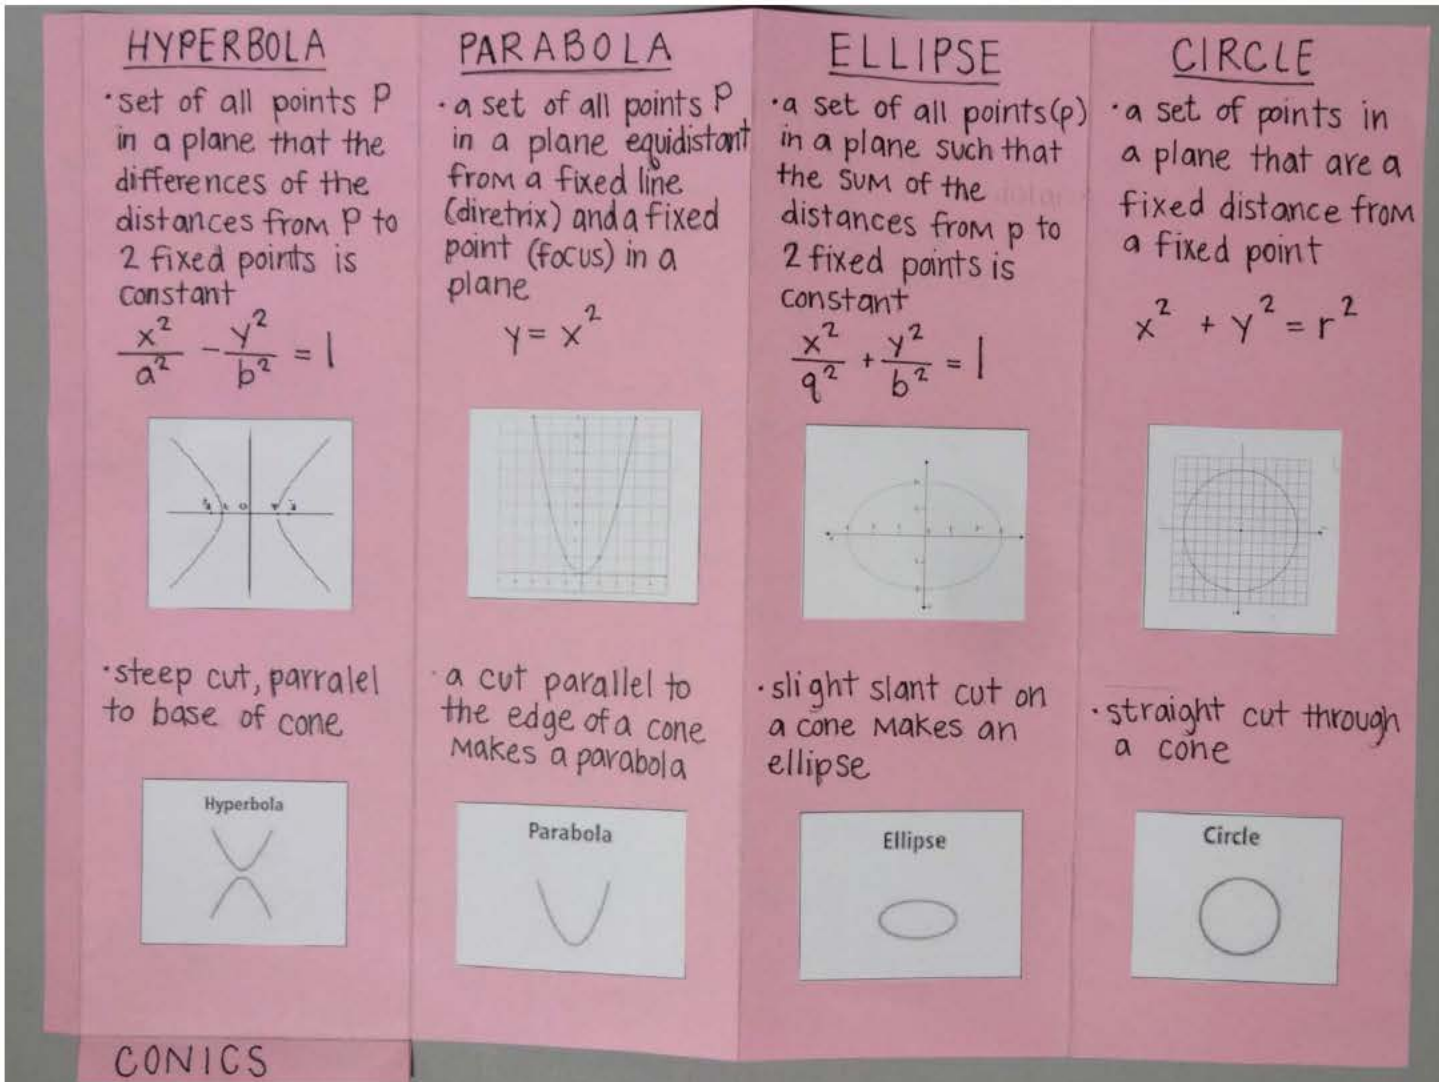 HYPERBOLA
· set of all points P
in a plane that the
differences of the
distances from P to
2 fixed points is
constant
x²/a² - y²/b² = 1
· steep cut, parralel
to base of cone
Hyperbola
PARABOLA
· a set of all points P
in a plane equidistant
from a fixed line
(diretrix) and a fixed
point (focus) in a
plane
y = x²
· a cut parallel to
the edge of a cone
makes a parabola
Parabola
ELLIPSE
· a set of all points (p)
in a plane such that
the sum of the
distances from p to
2 fixed points is
constant
x²/a² + y²/b² = 1
· slight slant cut on
a cone makes an
ellipse
Ellipse
CIRCLE
· a set of points in
a plane that are a
fixed distance from
a fixed point
x² + y² = r²
· straight cut through
a cone
Circle
CONICS